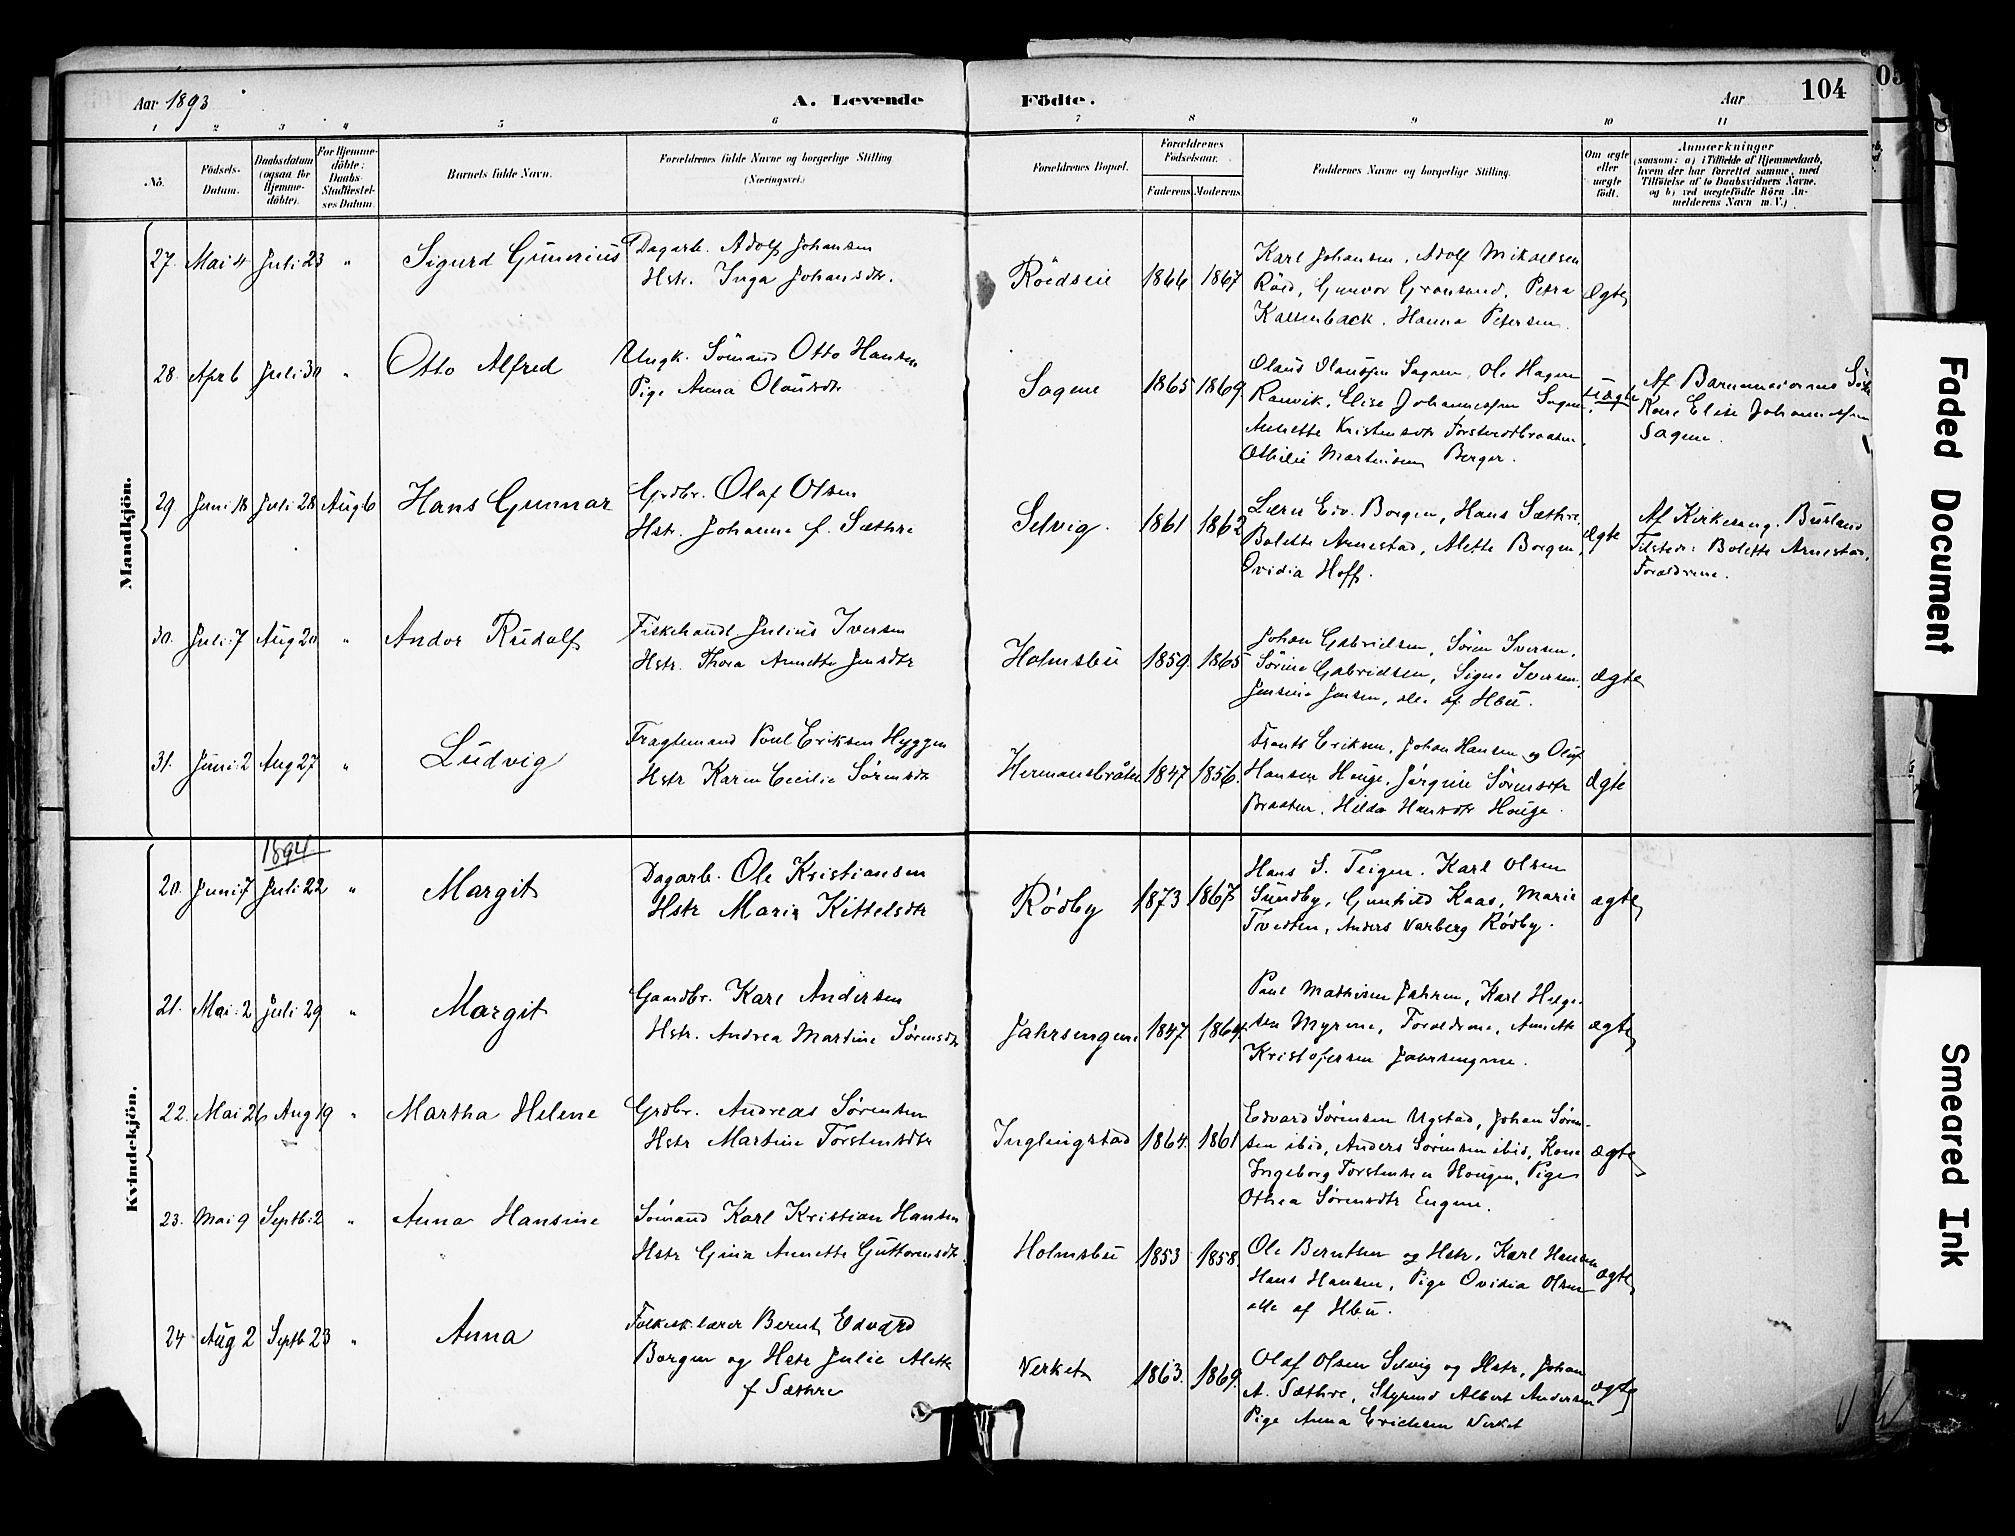 Aar 1893
A. Levende Födte.
Aar
104
1 2 3 4 5 6 7 8 9 10 11
No.
Födsels-Datum.
Daabsdatum (ogsaa for Hjemme-döbte).
For Hjemme-döbte: Daabs-Stadfæstel-ses Datum.
Barnets fulde Navn.
Forældrenes fulde Navne og borgerlige Stilling (Næringsvei.)
Forældrenes Bopæl.
Forældrenes Födselsaar.
Faderens Moderens
Faddernes Navne og borgerlige Stilling.
Om ægte eller uægte födt.
Anmærkninger
(saasom: a) i Tilfælde af Hjemmedaab, hvem der har forrettet samme, med Tilföielse af to Daabsvidners Navne, og b) ved uægtefödte Börn An-melderens Navn m. V.)
Mandkjön.
27. Mai 4 Juli 23 " Sigurd Gunerius
Dagarb. Adolf Johansen
Hstr. Inga Johansdtr.
Röedseie 1866 1867
Karl Johansen, Adolf Mikaelsen
Röed, Gunvor Grönsand, Petra
Kattenback, Hanna Petersen.
Ægte
28. Apr 6 Juli 30 " Otto Alfred
Ungk. Sömand Otto Hansen
Pige Anna Olausdtr
Sagene 1865 1869.
Olaus Olaussen Sagene, Ole Hagen
Ranvik, Elise Johannessen Sagene,
Annette Kristensdtr
Othilie Martinsen Berger.
Uægte
Af
Kone Elise Johannessen
Sagene.
29 Juni 18 Juli 28 Aug 6 Hans Gunnar
Grdbr. Olaf Olsen
Hstr. Johanne f. Sæthre
Selvig. 1861 1862
Lærer Edv. Borgen, Hans Sæthre,
Bolette Arnestad, Alette Borgen,
Ovidia Hoff.
Ægte
Af Kirkesang. Busland
Tilstede: Bolette Arnestad,
Forældrene.
30. Juli 7 Aug 20 " Andor Rudolf
Fiskehandl Julius Iversen
Hstr. Thora Annette Jensdtr
Holmsbu 1859 1865
Johan Gabrielsen, Sören Iversen,
Sörine Gabrielsen, Signe Iversen,
Jensine Jensen, alle af Hbu.
Ægte
31. Juni 2 Aug 27 " Ludvig
Fragtemand Poul Eriksen Hyggen
Hstr Karen Cecilie Sörensdtr
Hermansbråten 1847 1856.
Frants Eriksen, Johan Hansen og Oluf
Hansen Houge, Jörgine Sörensdtr
Braaten, Hilda Hansdtr Houge.
Ægte
Kvindekjön.
1894
20. Juni 7 Juli 22 " Margit
Dagarb. Ole Kristiansen
Hstr Marie Kittelsdtr
Rødby 1873 1867
Hans S. Teigen. Karl Olsen
Sundby, Gunhild Kaas, Marie
Tvedten, Anders Varberg Rødby.
ægte
21. Mai 2 Juli 29 " Margit
Gaardbr. Karl Andersen
Hstr. Andrea Martine Sörensdtr
Jahrsengene 1847 1864.
Paul Mathisen Jahren, Karl Helge-
sen Myrene, Forældrene, Annette
Kristofersen Jahrsengene.
ægte
22. Mai 26 Aug 19 " Martha Helene
Grdbr. Andreas Sørensen
Hstr Martine Torstensdtr
Inglingstad 1864. 1861
Edvard Sørensen Ugstad, Johan Søren-
sen ibid, Anders Sørensen ibid, Kone
Ingeborg Torstensen Hougen, Pige
Othea Sørensdtr Engene.
ægte
23. Mai 9 Septb: 2 " Anna Hansine
Sömand Karl Kristian Hansen
Hstr Gina Annette Guttormsdtr.
Holmsbu 1853 1858.
Ole Berntsen og Hstr, Karl Hansen
Hans Hansen, Pige Ovidia Olsen
alle af Hbu.
ægte
24 Aug 2 Septb 23 " Anna
Folkesk.lærer Bernt Edvard
Borgen og Hstr Julie Alette
f Sæthre
Verket 1863. 1869.
Olaf Olsen Selvig og Hstr, Johan
A. Sæthre, Styrmd Albert Andersen
Pige Anna Ericksen Verket
ægte
Faded Document
Smeared Ink